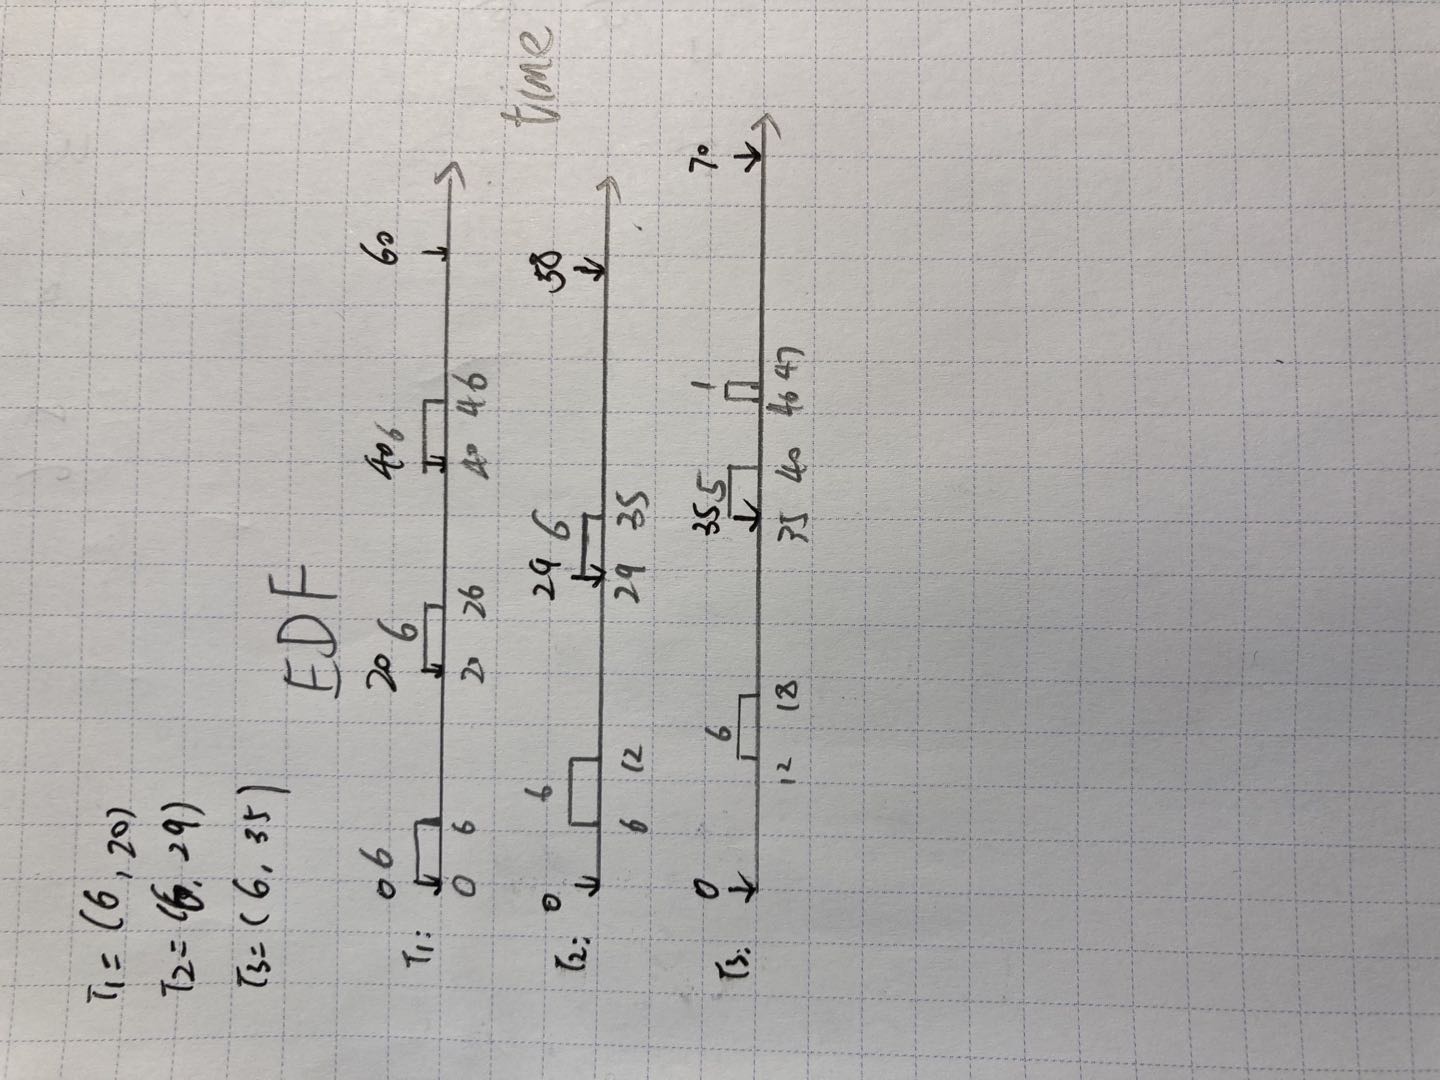 T1 = (6, 20)
T2 = (6, 29)
T3 = (6, 35)
EDF
0 6 20 6 40 6 60
T1:
0 6 20 26 40 46
time
0 6 29 6 58
T2:
6 12 29 35
0 6 35 5 1 70
T3:
12 18 35 40 46 47